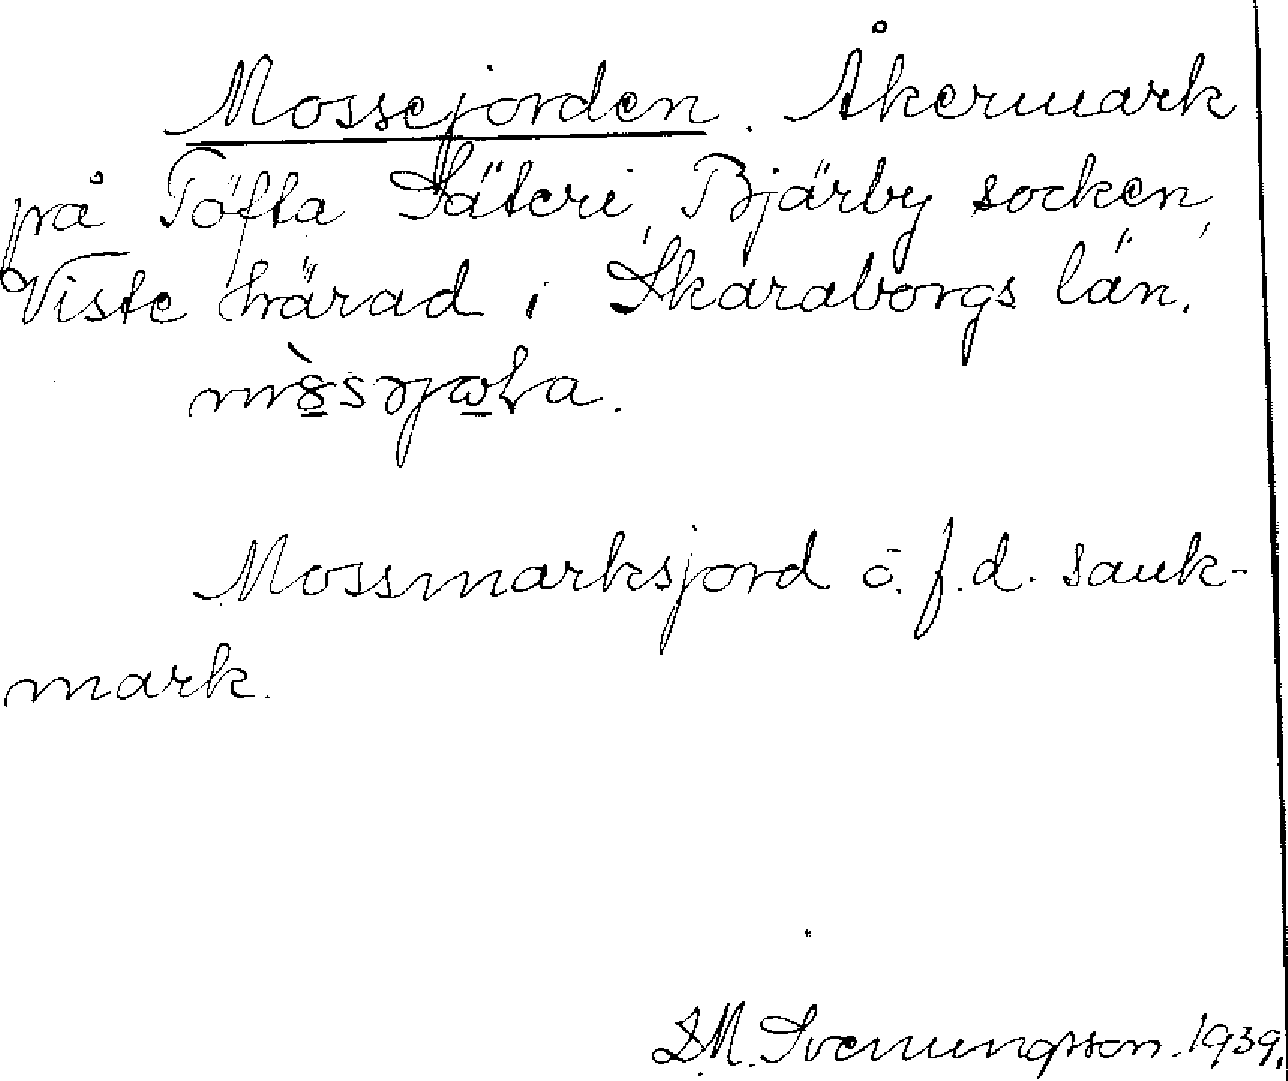 Mossejorden. Åkermark
på Töfta Säteri, Bjärby socken,
Viste härad i Skaraborgs län.
Mossmarksjord ö. f.d. sank-
mark.
S.M. Svenungsson. 1939.